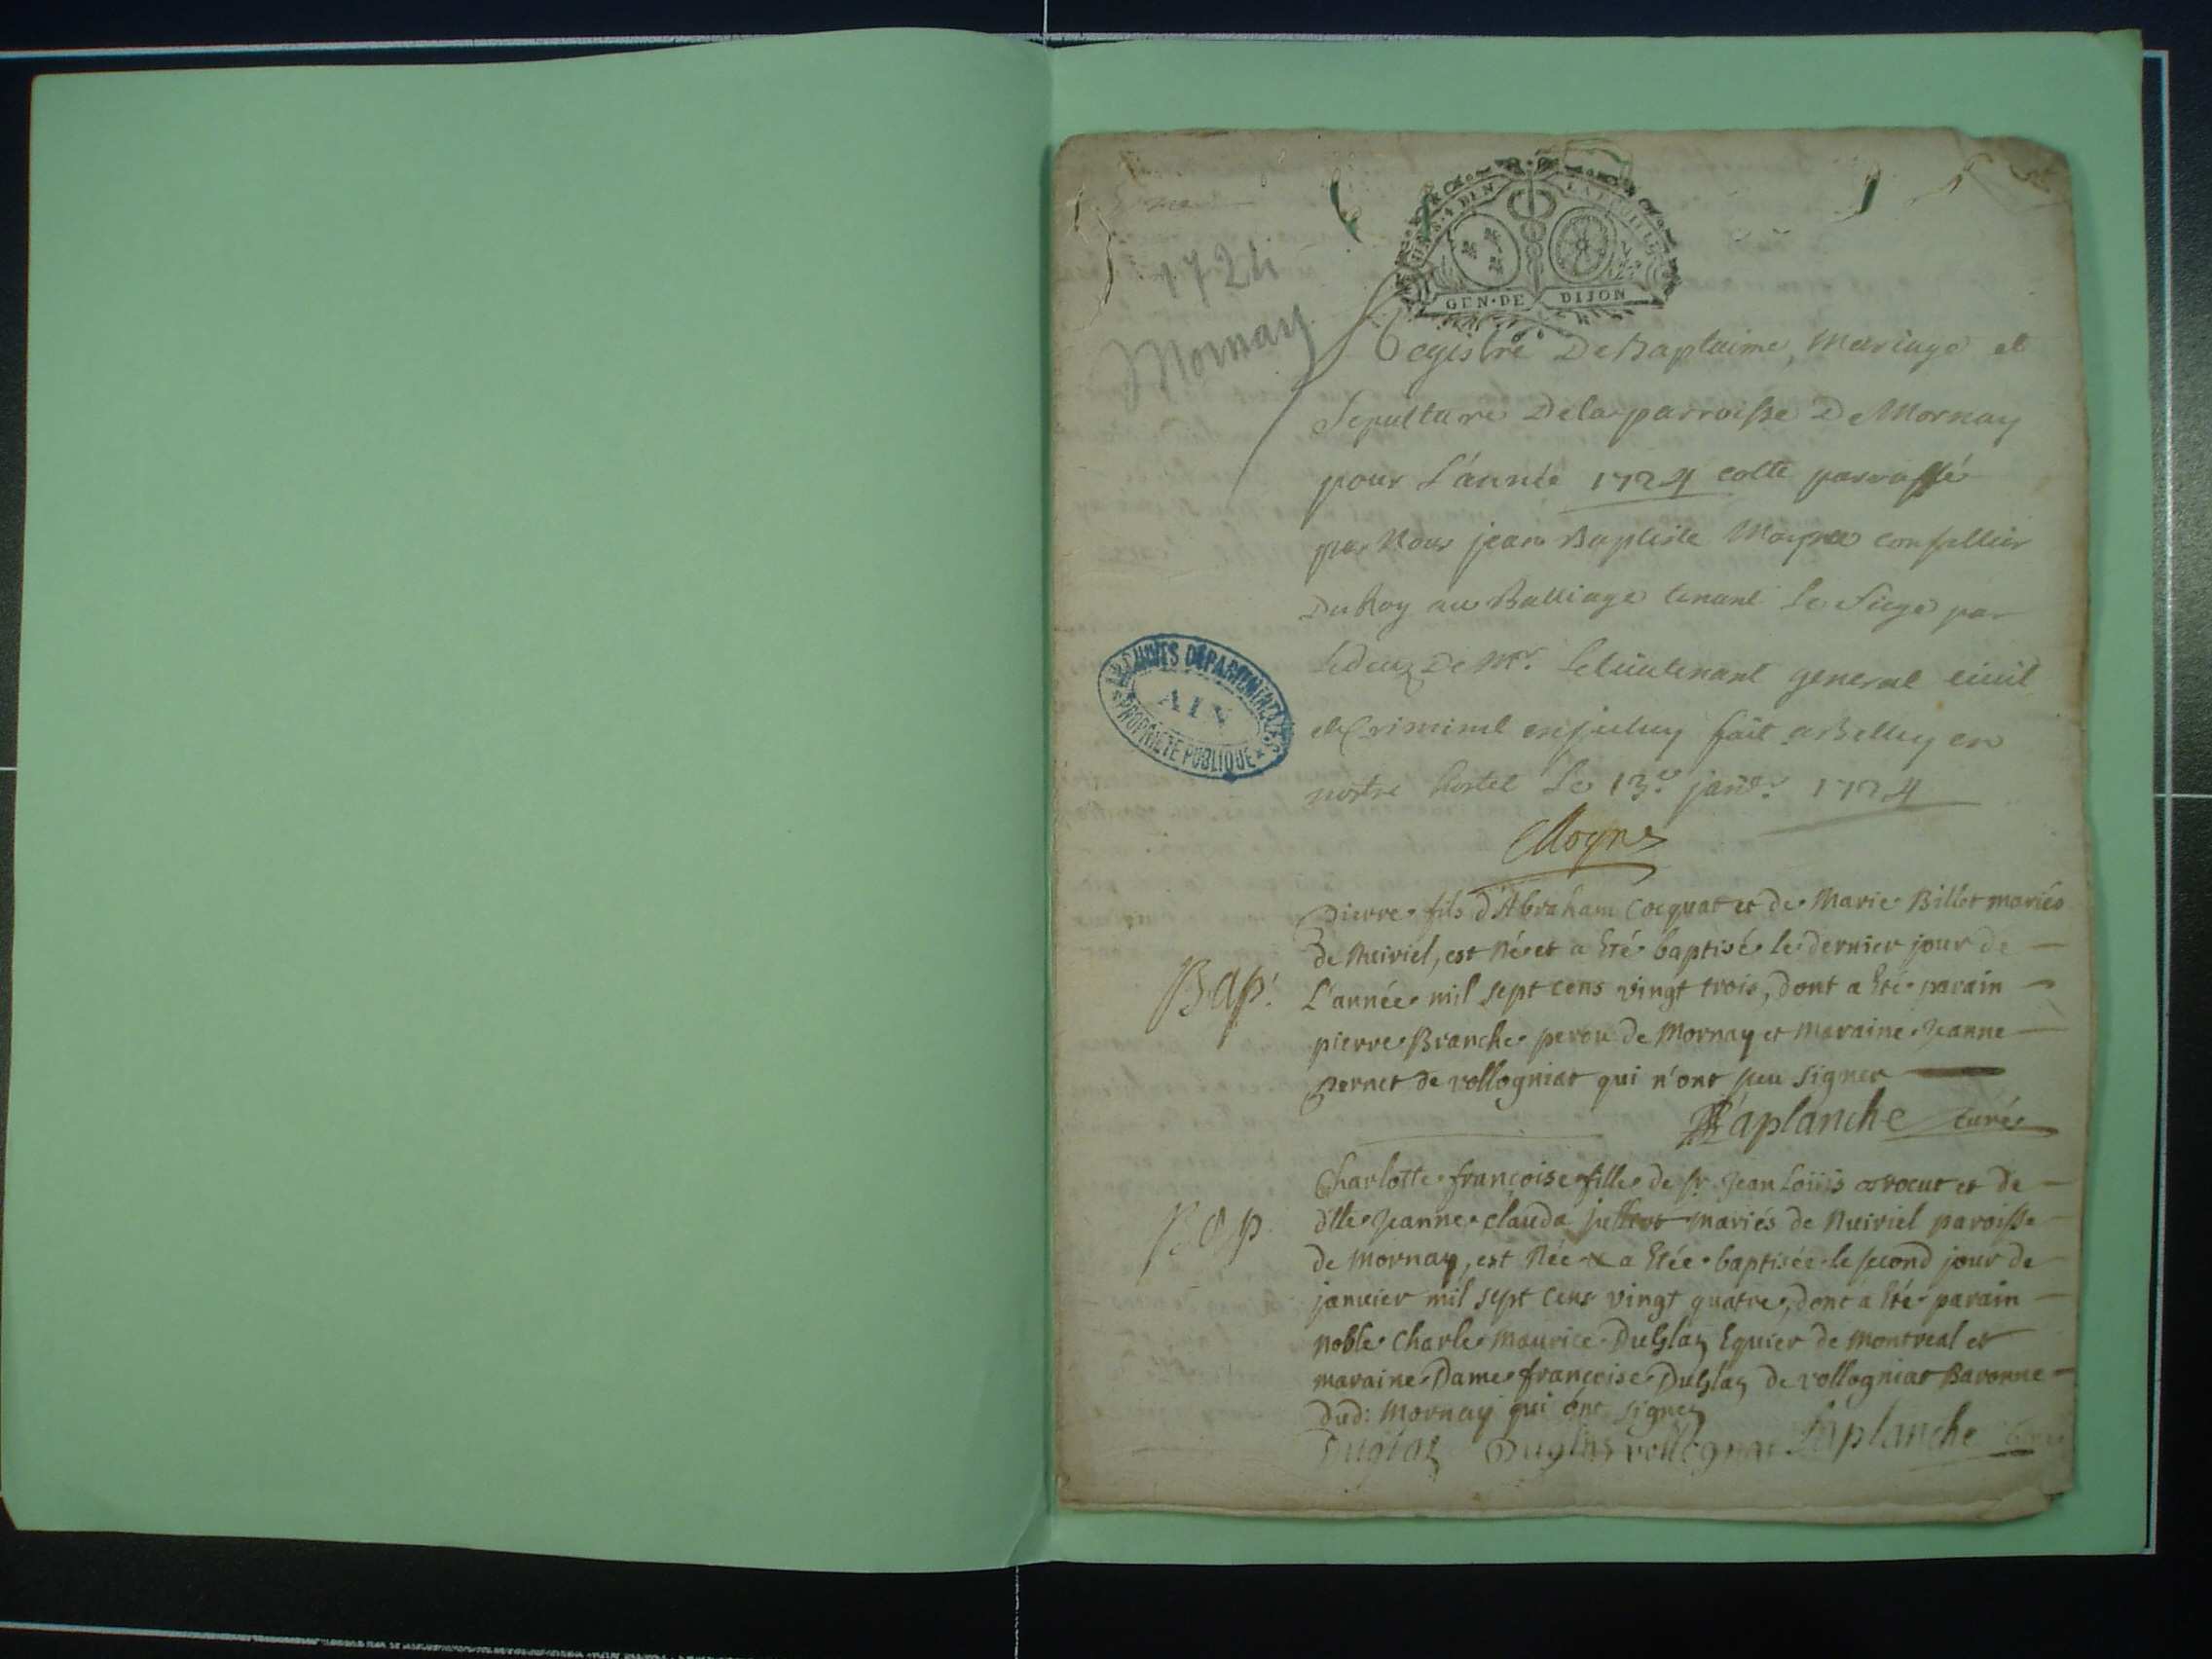 GEN·DE DIJON
1724
Mornay
Registre De Baptaime, Mariage et
Sepulture De la parroisse De Mornay
pour L'année 1724 cotté parraffé
par Nous jean Baptiste Moyne conseillier
Du Roy au Balliage tenant Le siege par
Le deuz De Mr. Le lieutenant general civil
et Criminel enjceluy fait a Belley en
nostre hostel Le 13e janvr. 1724
Moyne
ARCHIVES DÉPARTEMENTALES
AIN
PROPRIÉTÉ PUBLIQUE
Bap.
Pierre fils d'Abraham Cocquat et de Marie Billet mariés
de Nuiriel, est Né et a Eté baptisé le dernier jour de
L'année mil sept cens vingt trois, dont a Eté parain
pierre Branche de Mornay et Maraine Jeanne
pernet de vollogniat qui n'ont sceu signer
Laplanche curé
Bap.
Charlotte françoise fille de sr. Jean Loüis et de
dlle Jeanne clauda mariés de Nuiriel paroisse
de Mornay, est Née & a Etée baptisée le second jour de
januier mil sept cens vingt quatre, dont a Eté parain
Noble Charle Maurice Duglas Equier de Montreal et
maraine Dame françoise Duglas de vollogniat Baronne
dud: Mornay qui ont signez
Duglas Duglas vollognat Laplanche curé